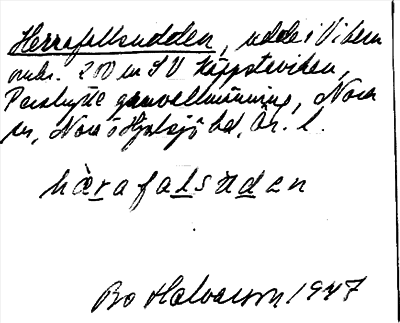 Herrafallsudden, udde i Vikern
omkr. 200 m SV Käppsteviken,
Pershytte gruvallmänning, Nora
sn, Nora o Hjulsjö bd, Ör. l.
hærafalsuden
Bo Halvarson 1947